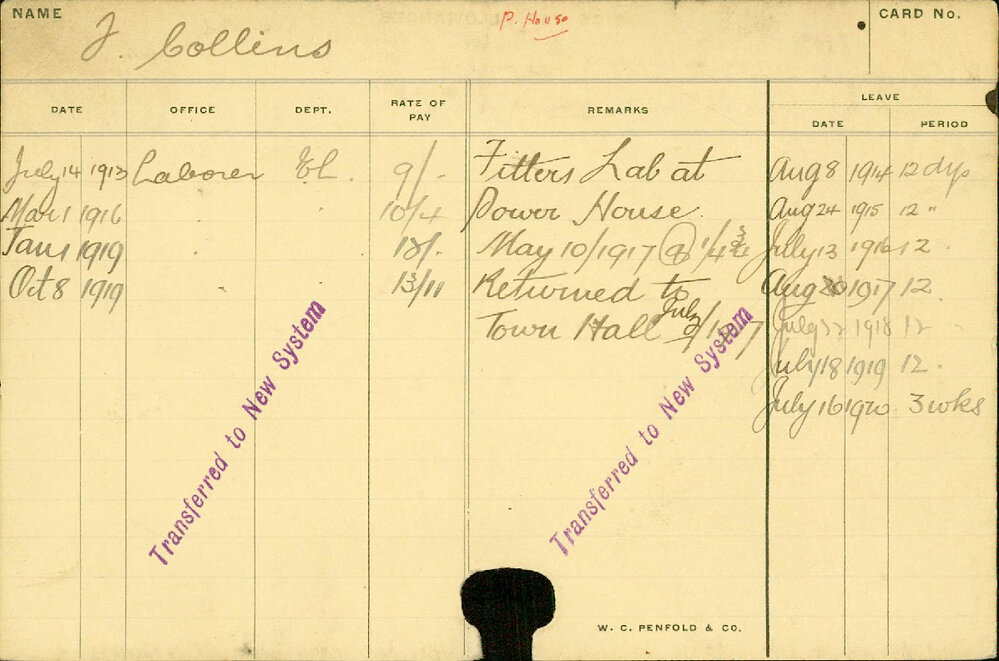 NAME
J. Collins
P. House
CARD No.
DATE OFFICE DEPT. RATE OF PAY REMARKS LEAVE
DATE PERIOD
July 14 1913 Laborer EL. 9/- Fitters Lab at Aug 8 1914 12 dys
Mar 1 1916 " " 10/4 Power House. Aug 24 1915 12 "
Jan 1 1919 12/. May 10/1917 @ 1/4 3/4 July 13 1916 12 .
Oct 8 1919 " " 13/11 Returned to Aug 1917 12.
Town Hall July 1917 July 1918 12 "
July 18 1919 12 .
July 16 1920 3 wks
Transferred to New System
Transferred to New System
W. C. PENFOLD & CO.